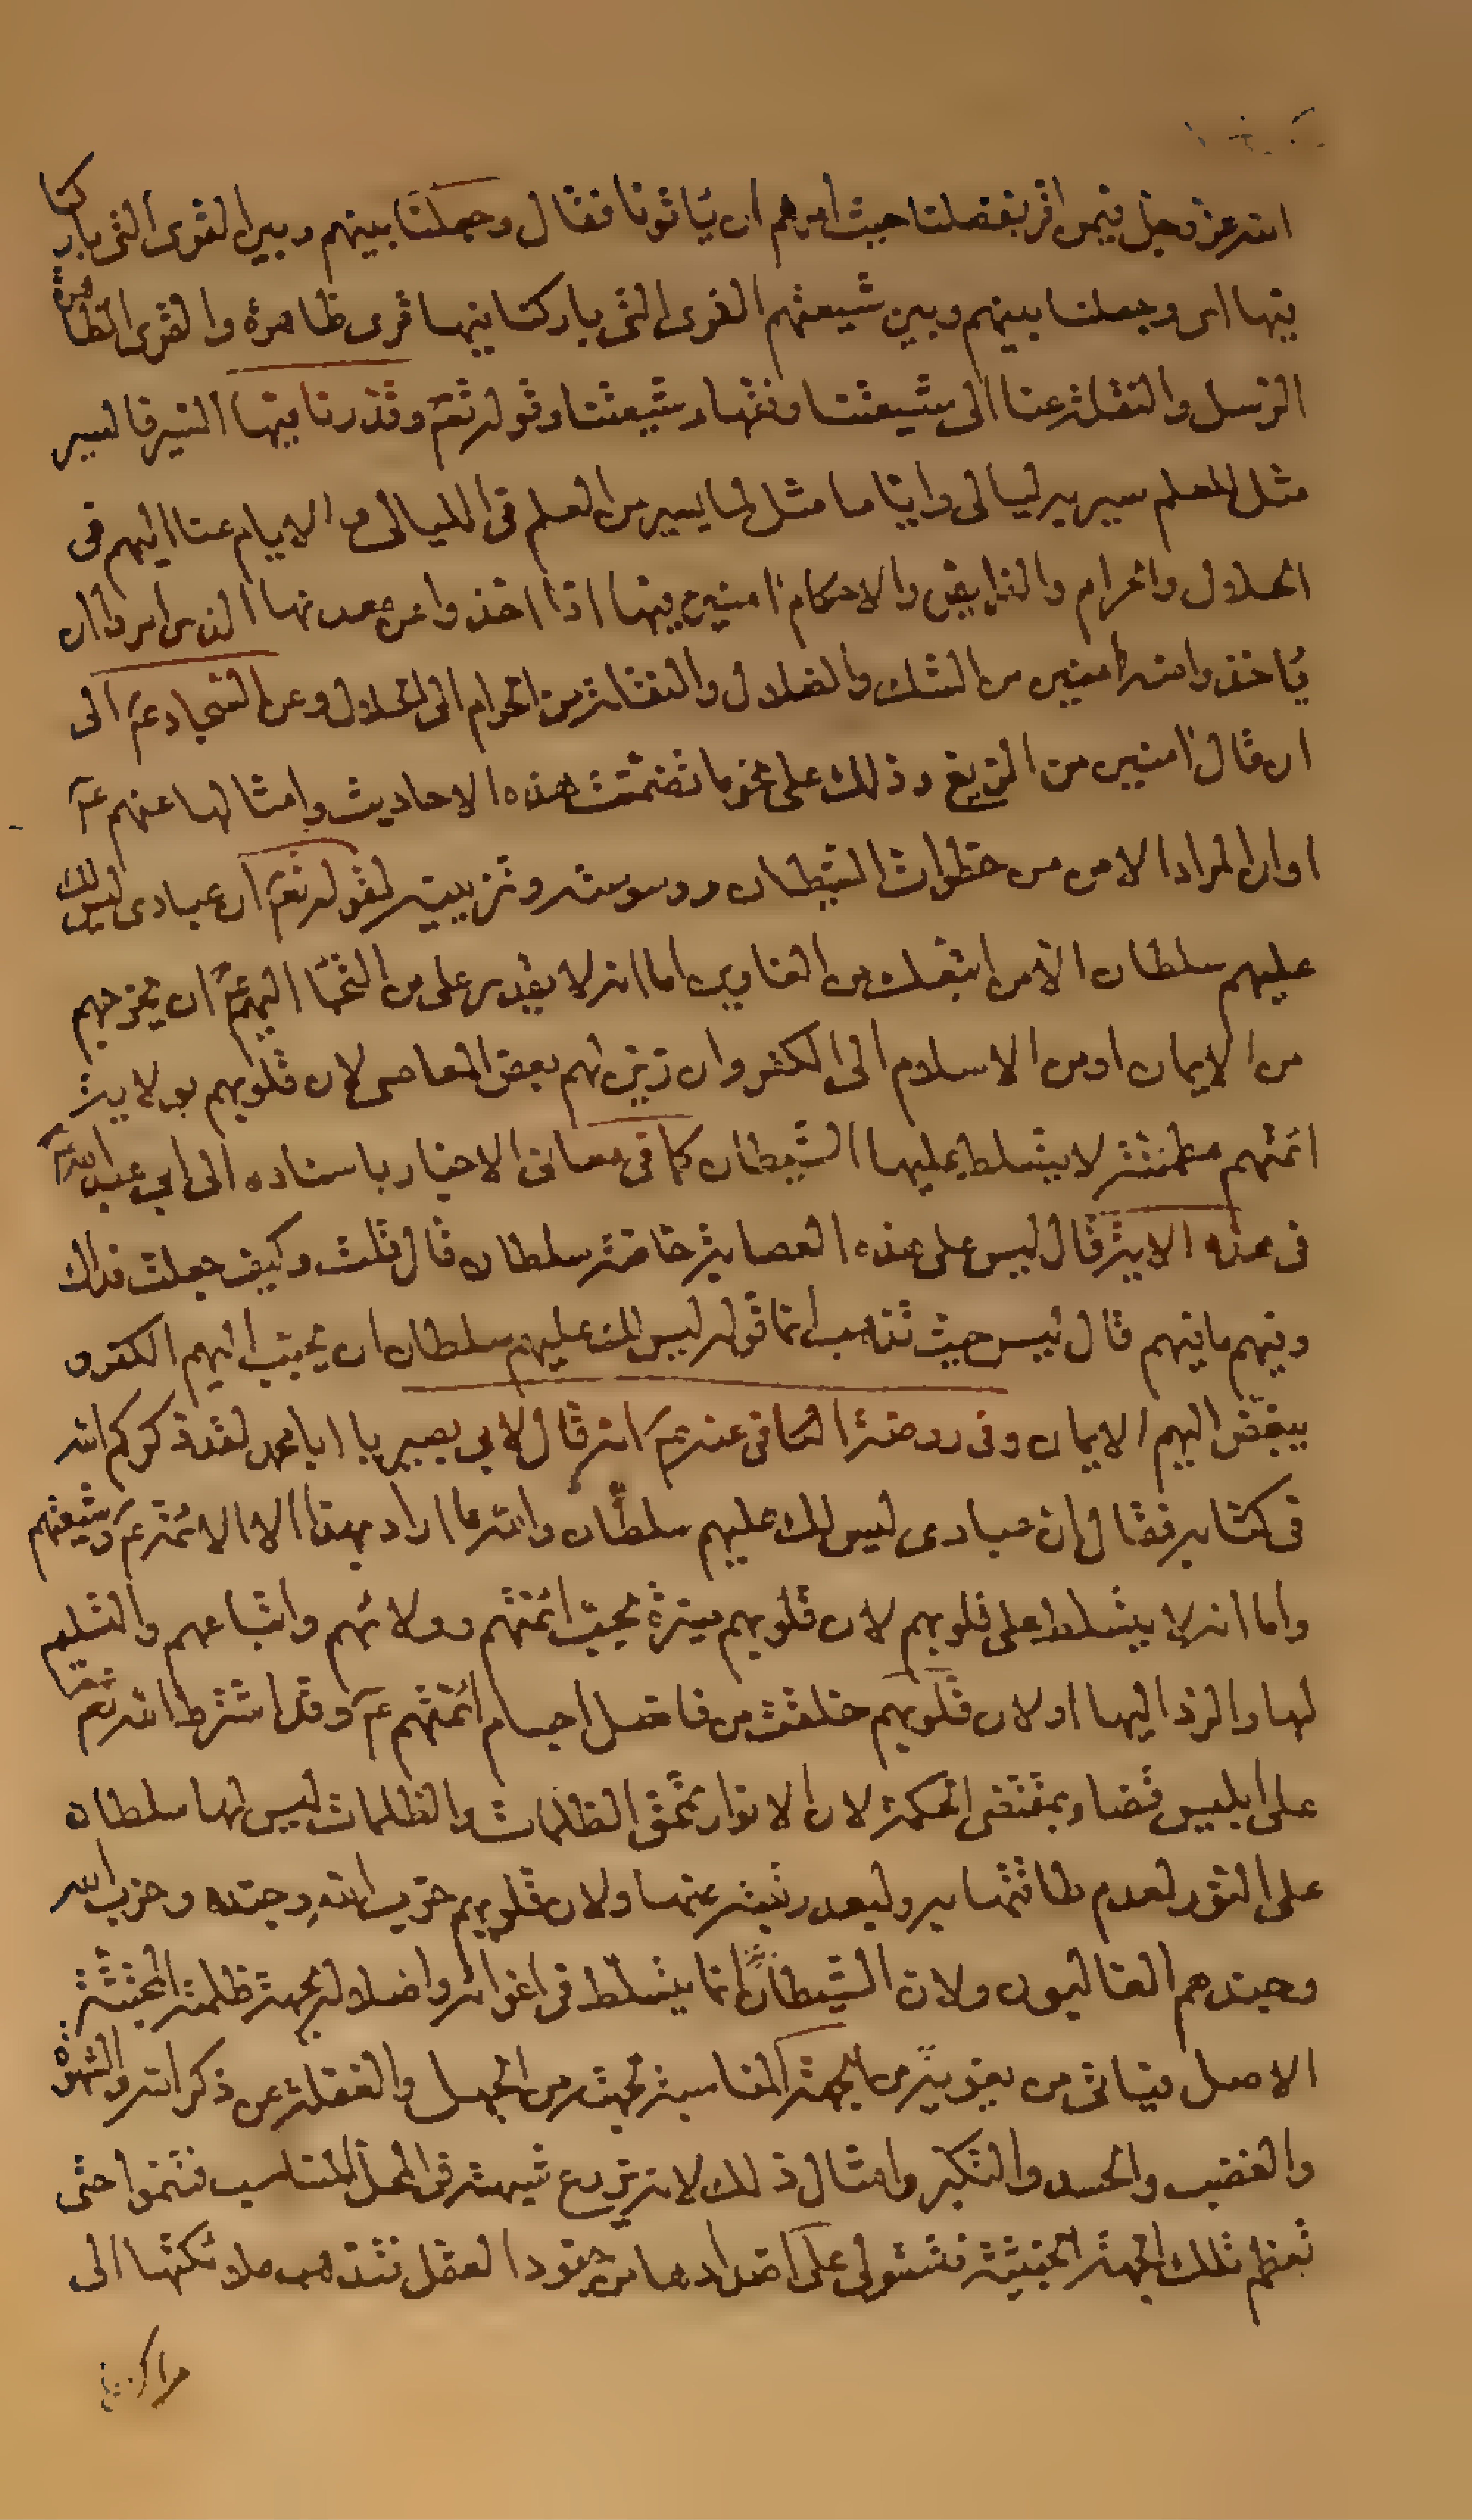 الله عز وجل فيمن اقر بفضلنا حيث امرهم ان ياتونا فقال وجعلنا بينهم وبين القرى التي باركنا
فيها اى وجعلنا بينهم وبين شيعتهم القرى التي باركنا فيها قرى ظاهرة والقرى الظاهرة
الرسل والنقلة عنا الى شيعتنا وفقهاء شيعتنا وقوله تعم وقدرنا فيها السير فالسير
مثل للعلم سير به ليالى واياما مثل لما يسير من العلم فى الليالى والايام عنا اليهم فى
الحلال والحرام والفرايض والاحكام امنين فيها اذا اخذوا من معدنها الذى امروا ان
ياخذوا منه امنين من الشك والضلال والنقلة من الحرام الى الحلال وعن السجاد عم الى
ان قال امنين من الزيغ وذلك على نحو ما تضمنت هذه الاحاديث وامثالها عنهم عم
او ان المراد الامن من خطوات الشيطان ووسوسته وتزيينه لقوله تعم ان عبادى ليس لك
عليهم سلطان الا من اتبعك من الغاوين اما انه لا يقدر على من التجا اليهم عم ان يخرجهم
من الايمان او من الاسلام الى الكفر وان زين لهم بعض المعاصى لان قلوبهم بولاية
ائمتهم مطمئنة لا يتسلط عليها الشيطان كما فى معانى الاخبار باسناده الى ابي عبد الله عم
فى هذه الاية قال ليس على هذه العصابة خاصة سلطان قال قلت وكيف جعلت فداك
وفيهم ما فيهم قال ليس حيث تذهب انما قوله ليس لك عليهم سلطان ان يحبب اليهم الكفر و
يبغض اليهم الايمان وفى روضة الكافى عنه عم انه قال لابي بصير يا ابا محمد لقد ذكركم الله
فى كتابه فقال ان عبادى ليس لك عليهم سلطان والله ما اراد بهذا الا الائمة عم وشيعتهم
واما انه لا يتسلط على قلوبهم لان قلوبهم نيرة بحب ائمتهم وولائهم واتباعهم والتسليم
لها والرد اليها او لان قلوبهم خلقت من فاضل اجسام ائمتهم عم وقد اشترط الله تعم
على ابليس قضاء بمقتضى الحكمة لان الانوار تمحق الظلمات والظلمات ليس لها سلطان
على النور لعدم طاقتها به ولبعد رتبته عنها ولان قلوبهم حزب الله وجنده وحزب الله
وجنده هم الغالبون ولان الشيطان انما يتسلط فى اغوائه واضلاله بجهة ظلمته المجتثة
الاصل فياتى من يغويه من الجهة المناسبة لجهته من الجهل والغفلة عن ذكر الله والشهوة
والغضب والحسد والتكبر وامثال ذلك لانه يزرع شبهته فى المحل المناسب فتنموا حتى
تعظم تلك الجهة الخبيثة فتستولى على اضدادها من جنود العقل فتذهب ملائكتها الى
مراكز